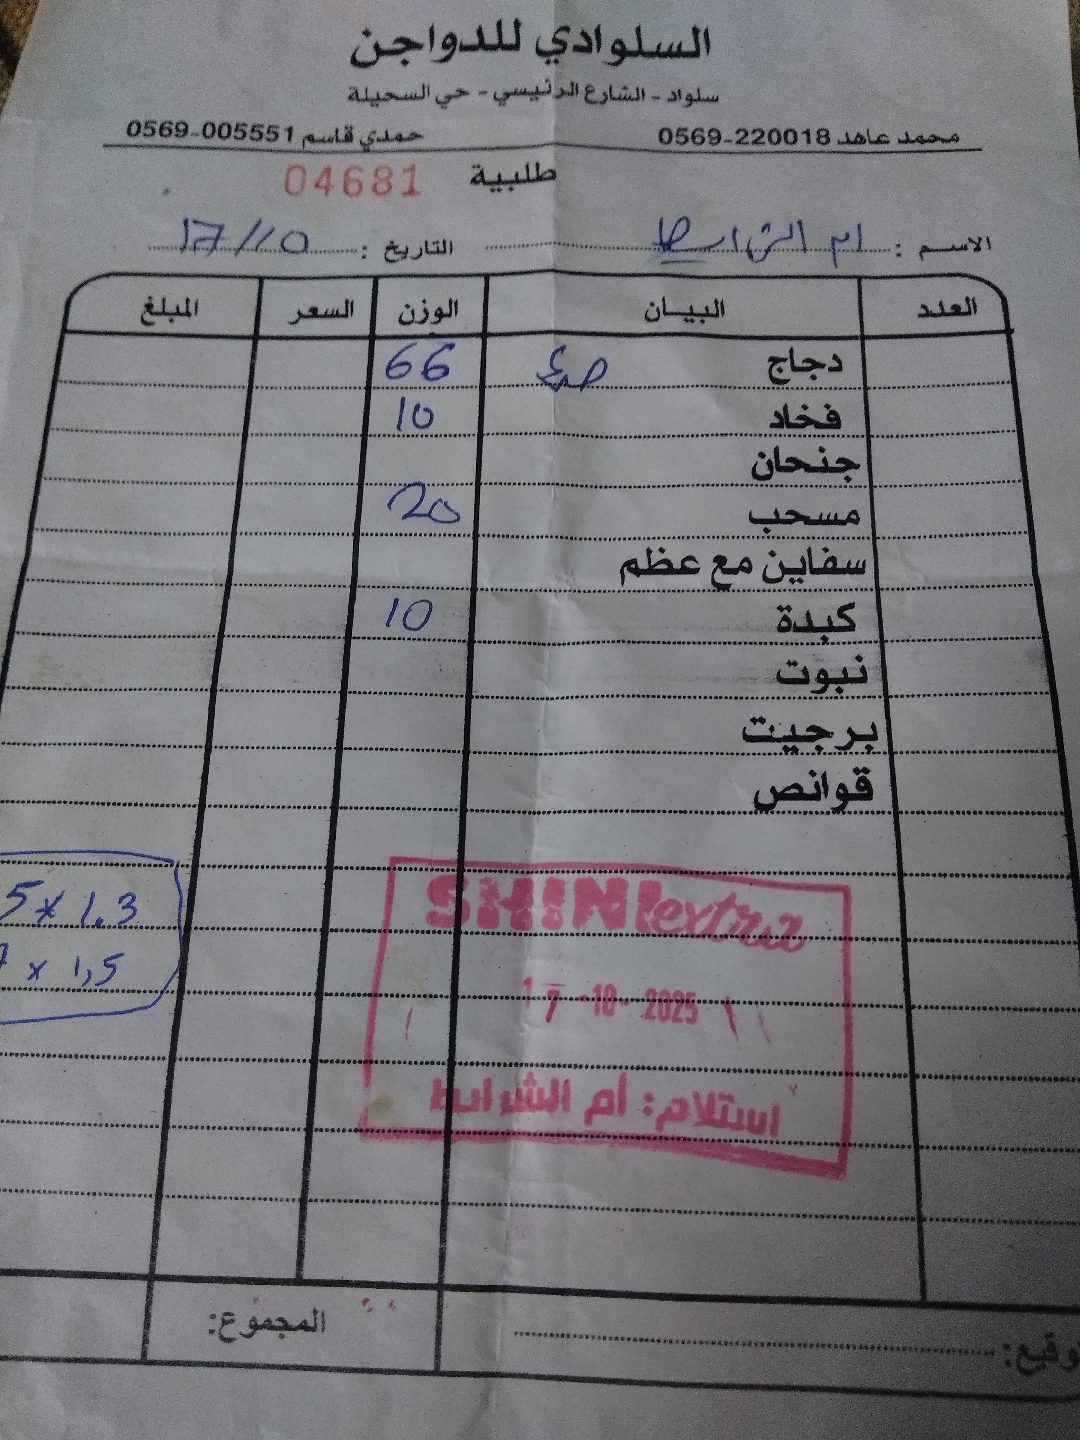 السلوادي للدواجن
سلواد - الشارع الرئيسي - حي السحيلة
محمد عاهد 0569-220018 حمدي قاسم 0569-005551
طلبية 04681
الاسم : ام الشرايط التاريخ : 17/10
العدد البيان الوزن السعر المبلغ
دجاج 66
فخاد 10
جنحان
مسحب 20
سفاين مع عظم
كبدة 10
نبوت
برجيت
قوانص
5 x 1.3
7 x 1,5
SHINI extra
17-10-2025
استلام: أم الشرايط
المجموع:
وقيع: